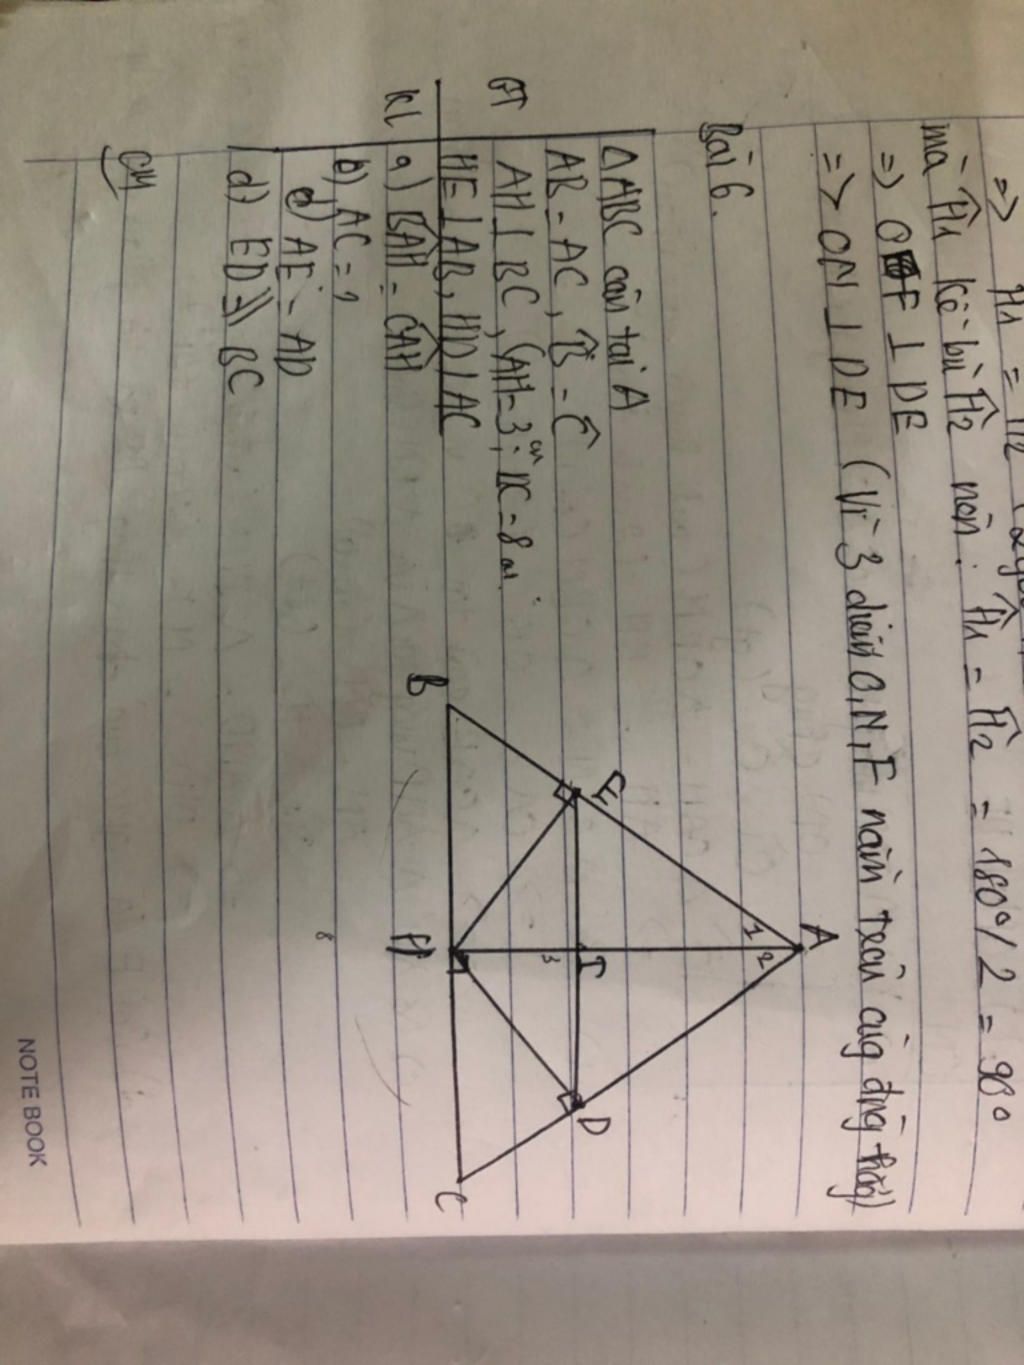 => Ĥ1 = Ĥ2
mà Ĥ1 kề bù Ĥ2 nên: Ĥ1 = Ĥ2 = 180°/2 = 90°
=> OF ⊥ DE
=> ON ⊥ DE (Vì 3 điểm O,N,F nằm trên cùng đng thẳg)
Bài 6.
GT
ΔABC cân tại A
AB = AC, B̂ = Ĉ
AH ⊥ BC, (AH = 3cm; BC = 8cm.
HE ⊥ AB, HD ⊥ AC
KL
a) BÂH = CÂH
b) AC = ?
c) AE = AD
d) ED // BC
CM
A
1 2
E
I
D
3
B
H
C
8
NOTE BOOK